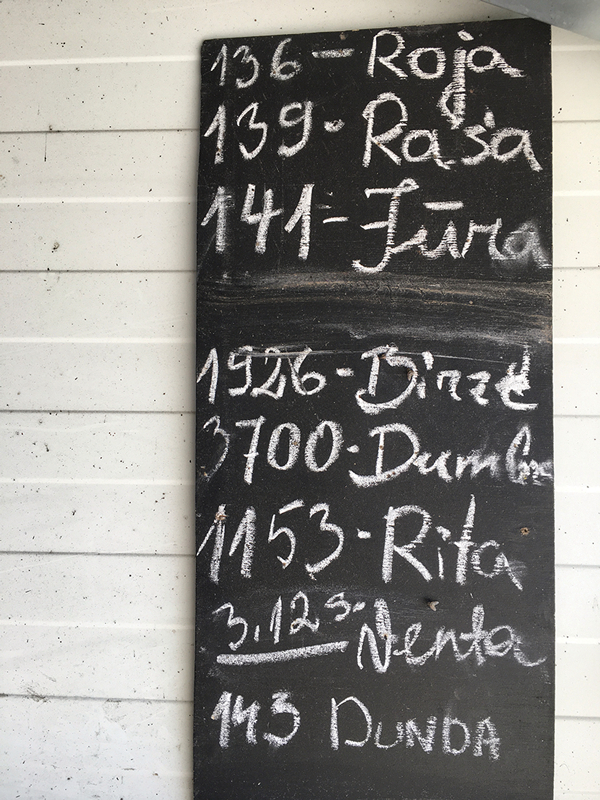 136 - Roja
139 - Rasa
141 - Jūra
1926 - Birzē
3700 - Dumbr
1153 - Rita
3.12 s. Venta
143 DUNDA